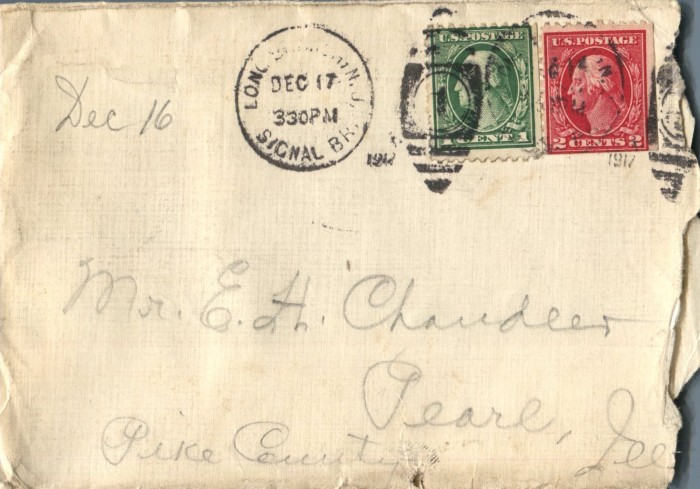 LONG BRANCH N.J.
DEC 17
330PM
SIGNAL BR.
1917
U.S. POSTAGE
1 CENT 1
U.S. POSTAGE
2 CENTS 2
1917
Dec 16
Mr. E. H. Chandler
Pearl, Ill
Pike County